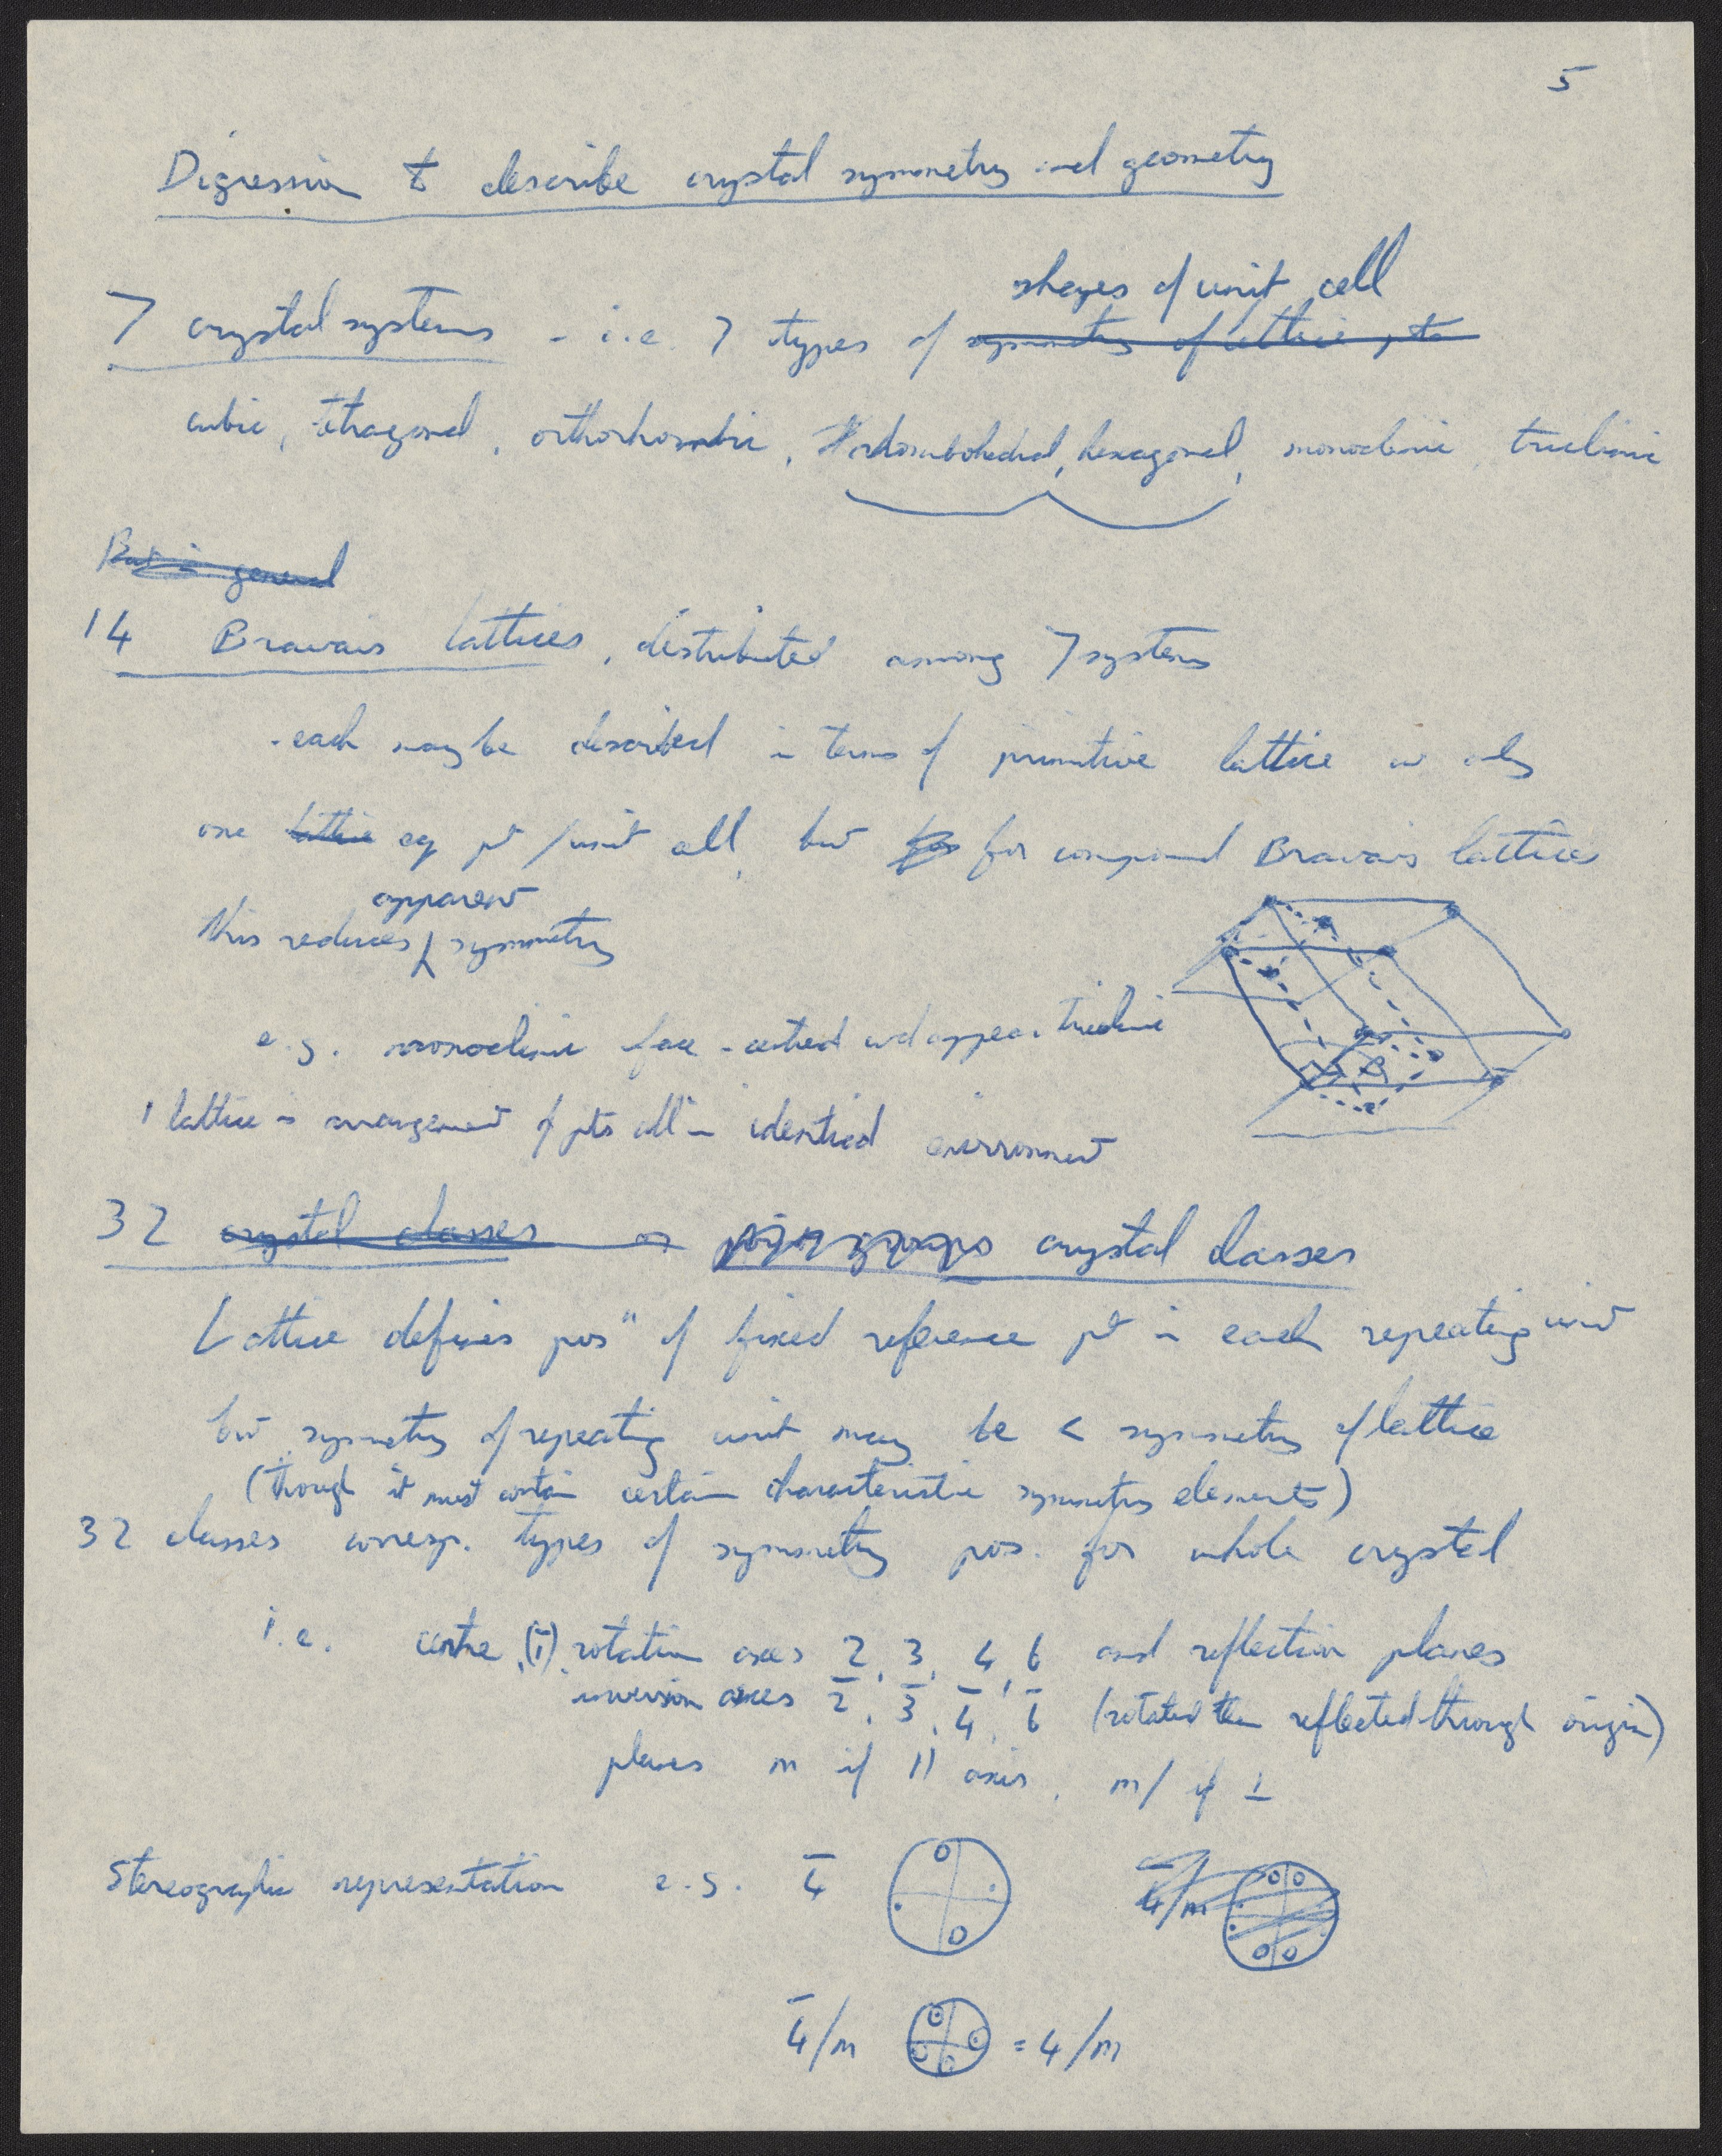 5
Digression to describe crystal symmetry and geometry
shapes of unit cell
7 crystal systems - i.e. 7 types of symmetry of lattice, to
cubic, tetragonal, orthorhombic, rhombohedral, hexagonal, monoclinic, triclinic
But in general
14 Bravais lattices, distributed among 7 systems
- each may be described in terms of primitive lattice w only
one lattice eq pt / unit cell, but for for compound Bravais lattices
apparent
this reduces symmetry
e.g. monoclinic face-centred wd appear triclinic
1 lattice is arrangement of pts all in identical environment
32 crystal classes or point groups crystal classes
Lattice defines posn of fixed reference pt in each repeating unit
but symmetry of repeating unit may be < symmetry of lattice
(though it must contain certain characteristic symmetry elements)
32 classes corresp. types of symmetry pos. for whole crystal
i.e. centre (1̄), rotation axes 2, 3, 4, 6 and reflection planes
inversion axes 2̄, 3̄, 4̄, 6̄ (rotated then reflected through origin)
planes m if || axis, m/ if ⊥
Stereographic representation e.g. 4̄ 4̄/m
4̄/m = 4/m